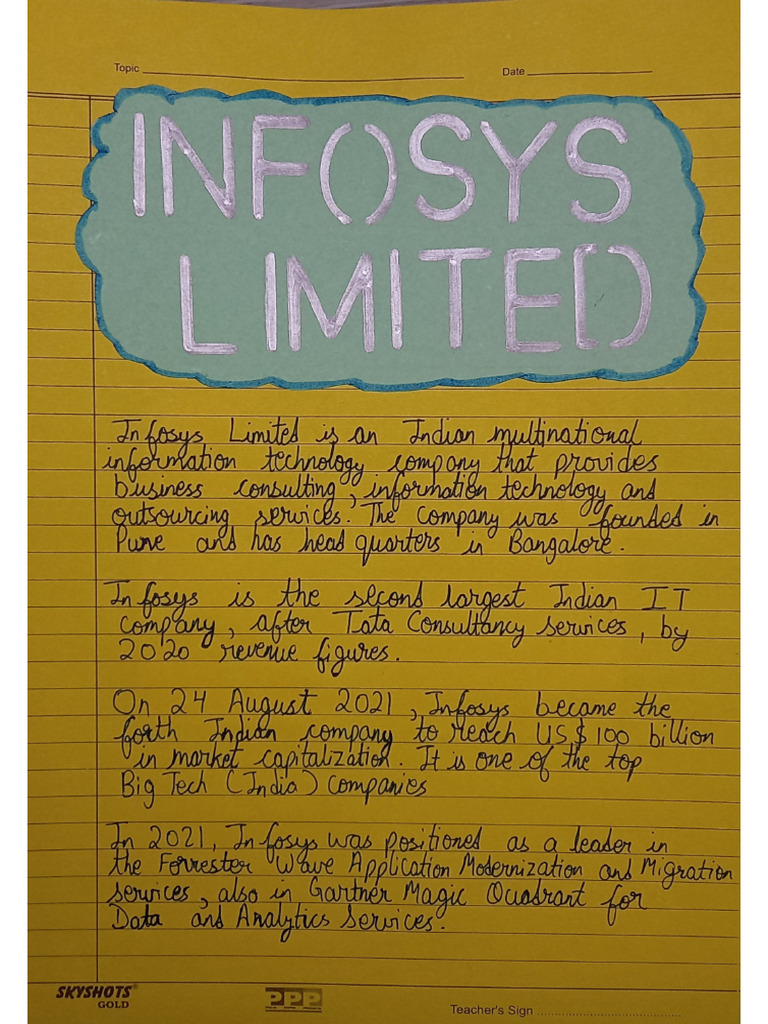 Topic
Date
INFOSYS
LIMITED
Infosys Limited is an Indian multinational
information technology company that provides
business consulting, information technology and
outsourcing services. The company was founded in
Pune and has head quarters in Bangalore.
Infosys is the second largest Indian IT
company, after Tata Consultancy services, by
2020 revenue figures.
On 24 August 2021, Infosys became the
forth Indian company to reach US$ 100 billion
in market capitalization. It is one of the top
Big Tech (India) companies
In 2021, Infosys was positioned as a leader in
the Forrester Wave Application Modernization and Migration
services, also in Gartner Magic Quadrant for
Data and Analytics Services.
SKYSHOTS®
GOLD
PPP
Teacher's Sign